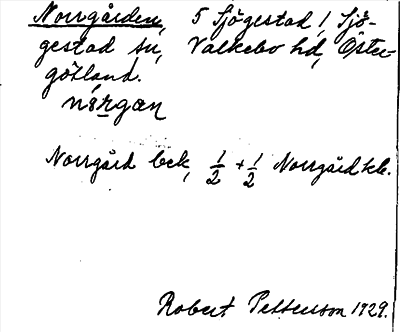 Norrgården, 5 Sjögestad, Sjö-
gestad sn, Valkebo hd, Öster-
götland.
nǫrgan
Norrgård bek, 1/2 + 1/2 Norrgård kb.
Robert Pettersson 1929.